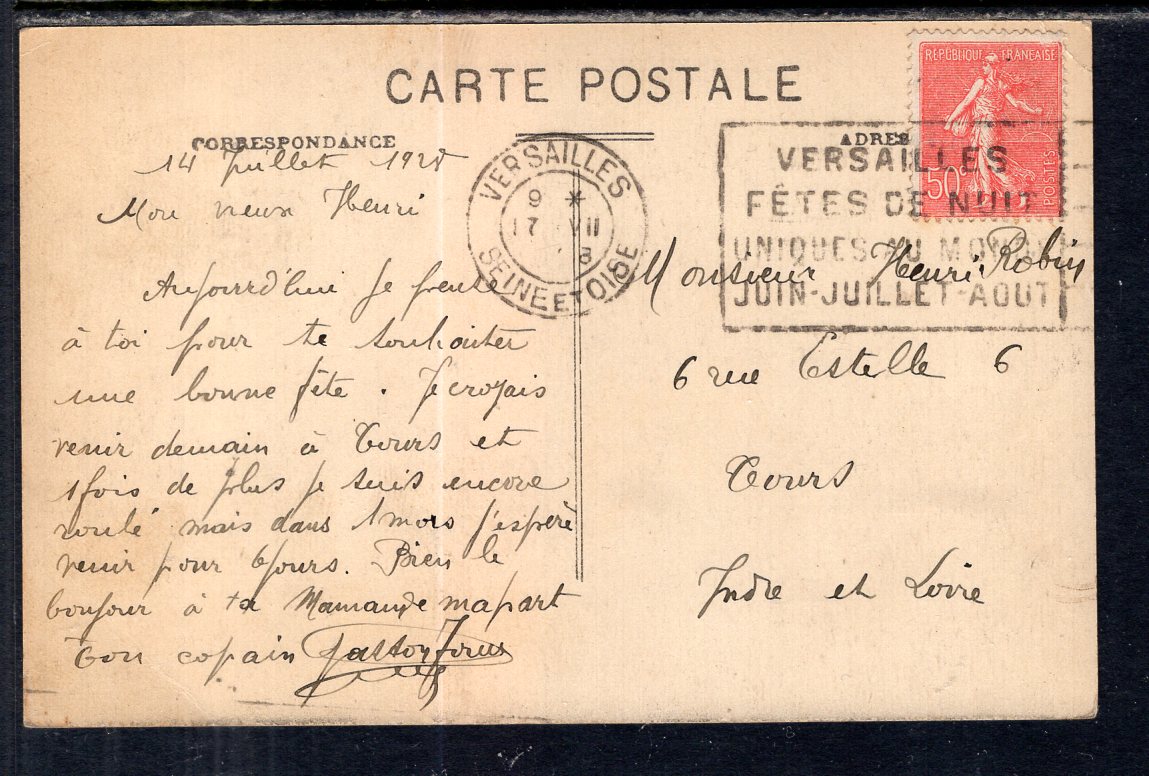 CARTE POSTALE
CORRESPONDANCE
14 Juillet 1928
Mon vieux Henri
Aujourd'hui je pense
à toi pour te souhaiter
une bonne fête. Je croyais
venir demain à Tours et
1 fois de plus je suis encore
roulé mais dans 1 mois j'espère
venir pour 6 jours. Bien le
bonjour à ta Maman de ma part
Ton copain Gaston
VERSAILLES
9 *
17 VII
8
SEINE ET OISE
REPUBLIQUE FRANÇAISE
50c
POSTES
ADRES
VERSAILLES
FÊTES DE NUIT
UNIQUES AU MONDE
JUIN-JUILLET-AOUT
Monsieur Henri Robin
6 rue Estelle 6
Tours
Indre et Loire